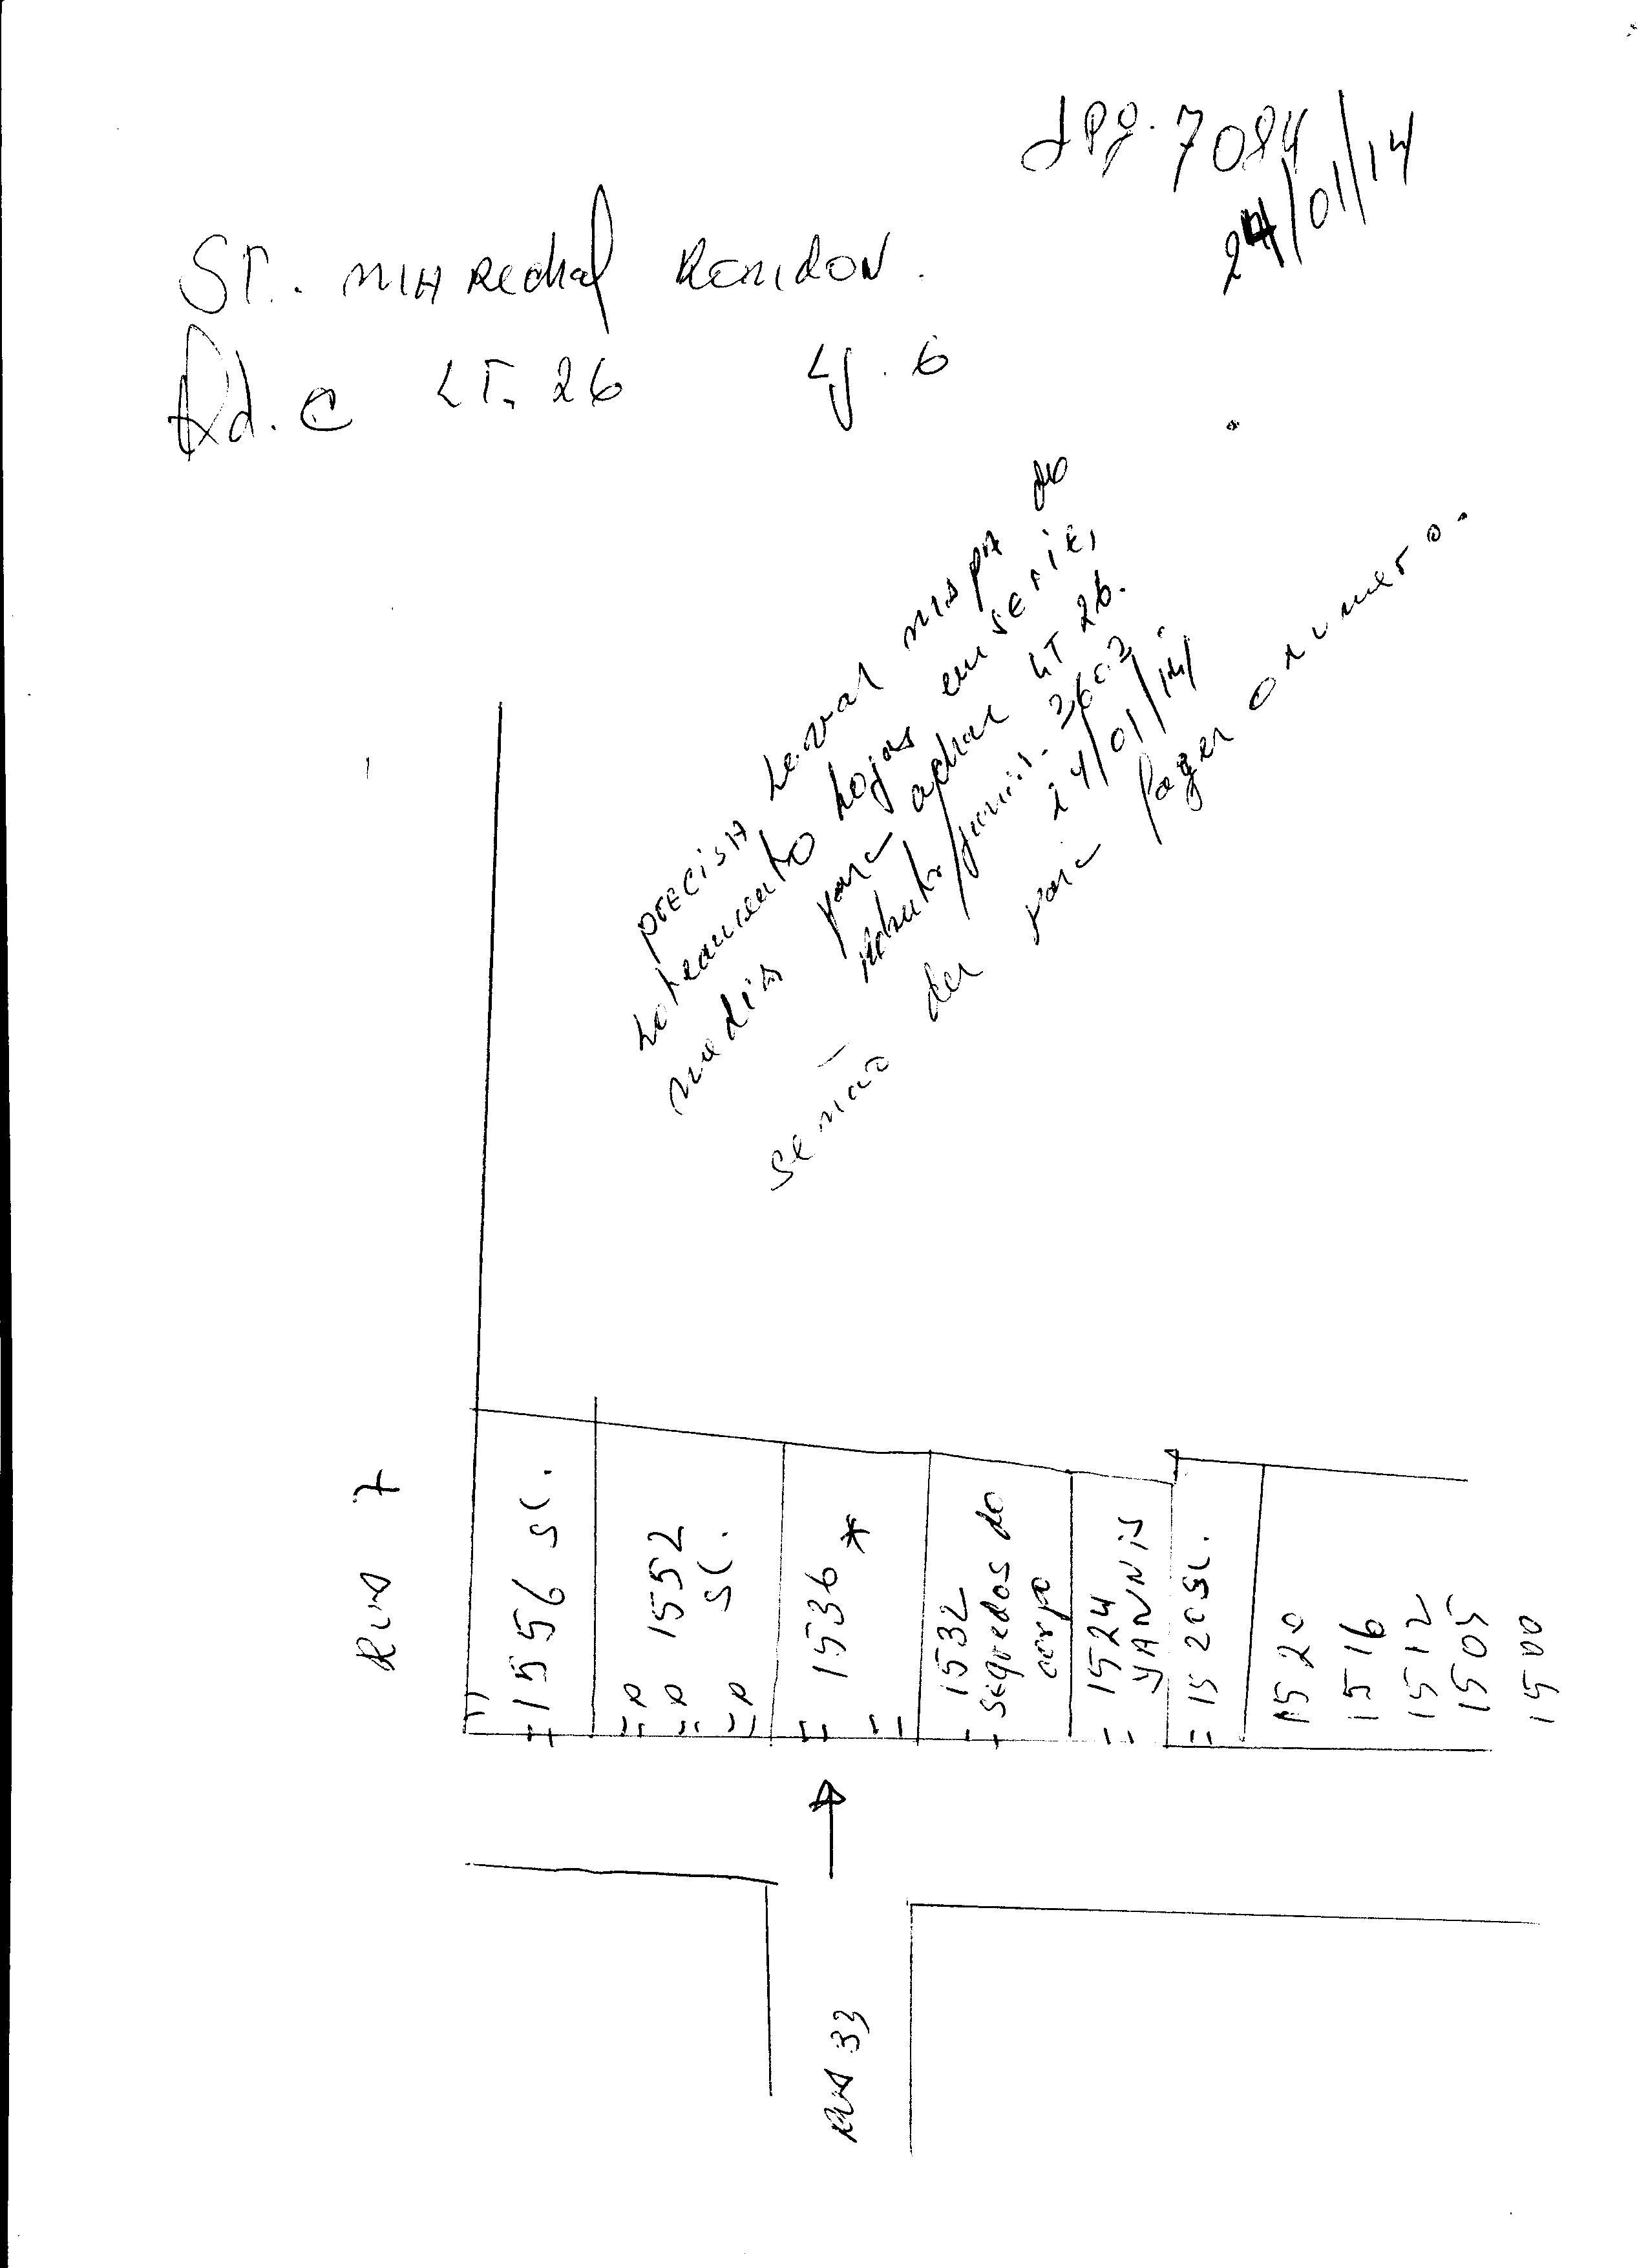 JPg. 7084
24/01/14
ST. MARECHAL RONDON.
Qd. C LT. 26 Lj. 6
PRECISA LEVAR MAPA do
Loteamento Lojas em SERIE,
medir para achar LT 26.
24/01/14
senão der para fazer o numero.
Rua 7
1556 SL.
1552
SL.
1536
*
1532
segredos do
corpo
1524
YANNIS
1520SL.
1520
1516
1512
1505
1500
Rua 33